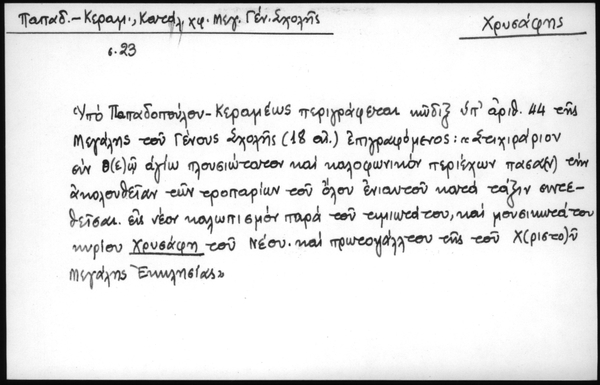 Παπαδ.-Κεραμ., Κατάλ. χφ. Μεγ. Γέν. Σχολῆς
Χρυσάφης
σ. 23
Ὑπό Παπαδοπούλου-Κεραμέως περιγράφεται κῶδιξ ὑπ' ἀριθ. 44 τῆς
Μεγάλης τοῦ Γένους Σχολῆς (18 αἰ.) ἐπιγραφόμενος: «Στιχιράριον
σύν Θ(ε)ῷ ἁγίῳ πλουσιώτατον καί καλοφωνικόν περιέχων πασα(ν) τήν
ἀκολουθείαν τῶν τροπαρίων τοῦ ὅλου ἐνιαυτοῦ κατά τάξιν συντε-
θεῖσαι. εἰς νέον καλωπισμόν παρά τοῦ τιμιωτάτου, καί μουσικωτάτου
κυρίου Χρυσάφη τοῦ Νέου. καί πρωτοψάλτου τῆς τοῦ Χ(ριστο)ῦ
Μεγάλης Ἐκκλησίας»